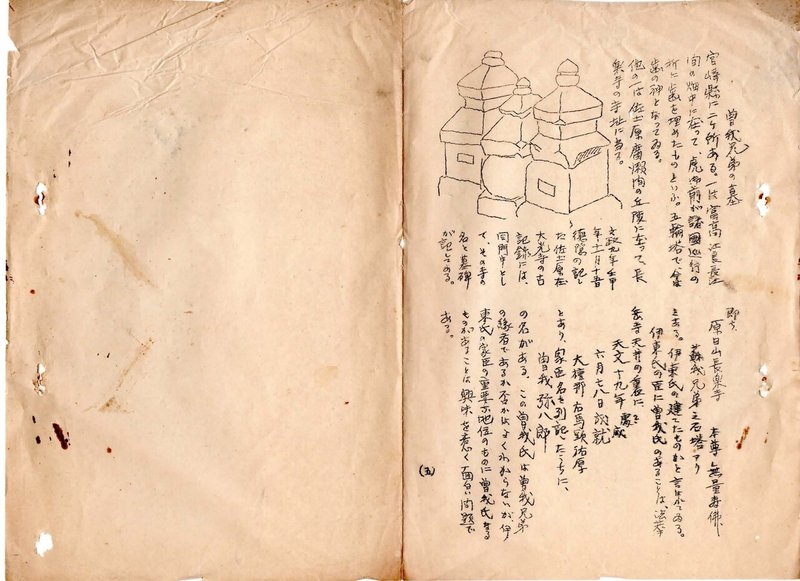 曽我兄弟の墓
宮崎縣に二ヶ所ある。一は富高 江良長江
間の畑中に在って、虎御前が諸國巡行の
折に歯を埋めたものといふ。五輪塔で今は
歯の神となってゐる。
他の一は佐土原廣瀬内の丘陵に在って、長
楽寺の寺址に当る。
文政九年壬申
年十一月十五日
徳隠の記し
た佐土原在
大光寺の古
記録には、
同門中とし
て、その寺の
名と墓碑
が記してある。
即ち、
原日山長楽寺 本尊無量寿佛
蘓我兄弟之石塔アリ
とある。伊東氏の建てたものかと言はれてゐる。
伊東氏の臣に曽我氏のあることは、法華
岳寺天井の裏に、
天文十九年
六月七八日 成就
大檀那右馬頭祐厚
とあり、家臣名を列記したうちに、
曽我弥八郎
の名がある、この曽我氏は曽我兄弟
の縁者であるか否かはよくわからないが、伊
東氏の家臣の重要な地位のものに曽我氏なる
ものがあることは興味を惹く面白い問題で
ある。
(五)